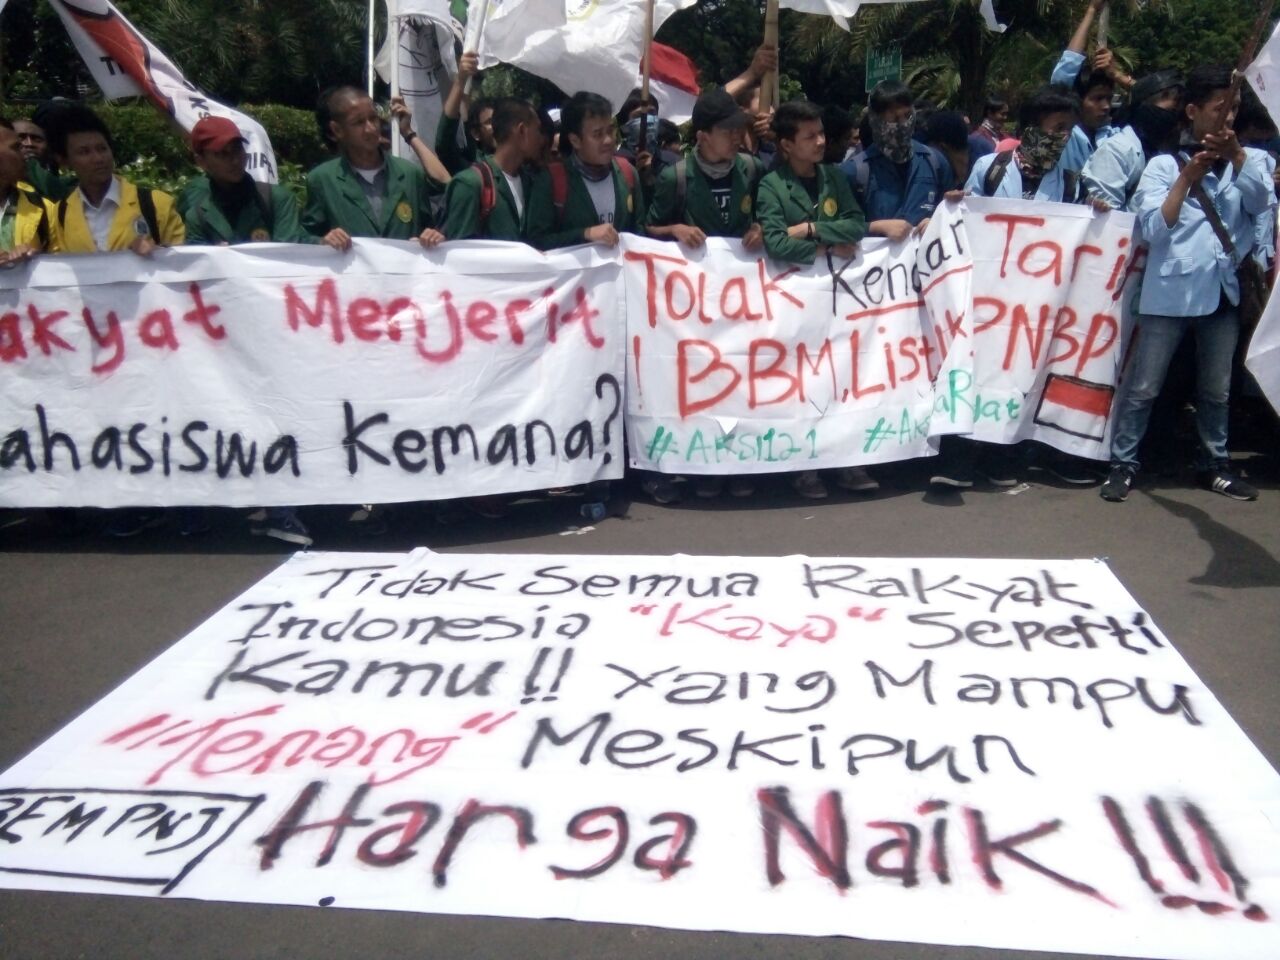 akyat Menjerit
ahasiswa Kemana?
Tolak Kenaikan Tarif
! BBM, Listrik, PNBP!
#AKSI121 #AksiRakyat
Tidak Semua Rakyat
Indonesia "Kaya" Seperti
Kamu!! Yang Mampu
"Tenang" Meskipun
Harga Naik!!!
BEM PNJ